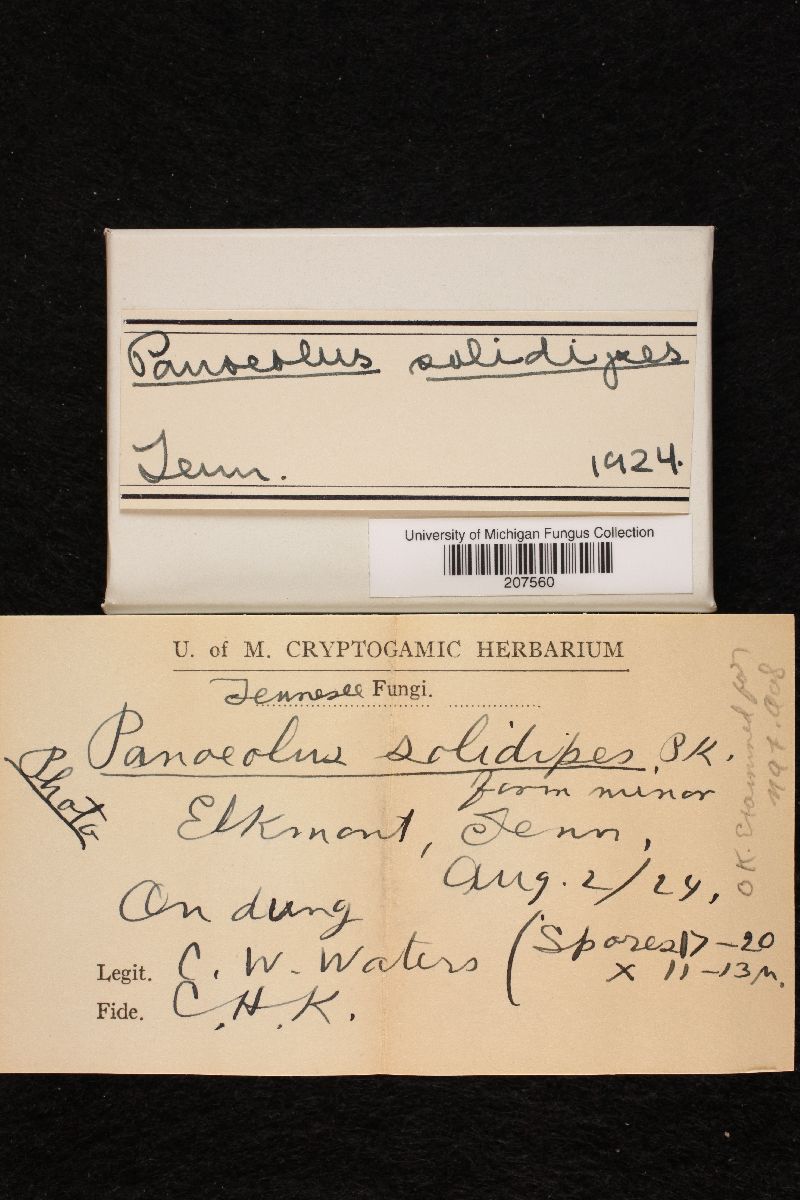 Panoeolus solidipes
Tenn. 1924.
University of Michigan Fungus Collection
207560
U. of M. CRYPTOGAMIC HERBARIUM
Tennesee Fungi.
Panoeolus solidipes, PK.
form minor
Photo
Elkmont, Tenn.
Aug. 2/24,
On dung
(Spores 17-20
x 11-13µ.
Legit. C. W. Waters
Fide. C.H.K.
OK. Examined for